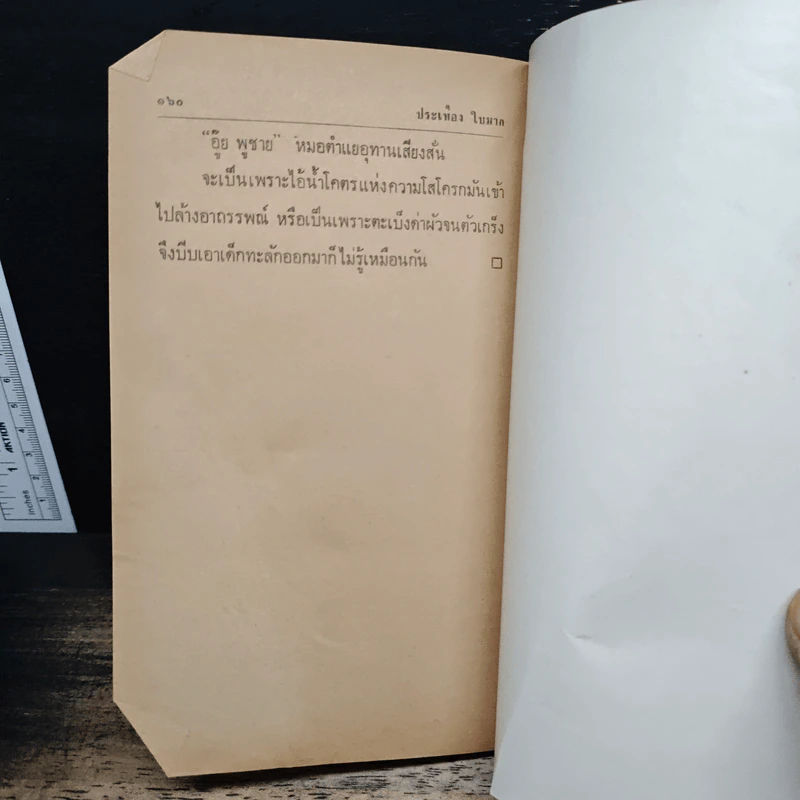 ๑๖๓ ประเทือง ใบมาล
“อู๊ย พูชาย” หมอตำแยอุทานเสียงสั่น
จะเป็นเพราะไอ้น้ำโคตรแห่งความโสโครกมันเข้า
ไปล้างอาถรรพณ์ หรือเป็นเพราะตะเบ็งด่าผัวจนตัวเกร็ง
จึงบีบเอาเด็กทะลักออกมาก็ไม่รู้เหมือนกัน
AKTION
inches
1
1 2 3 4 5 6